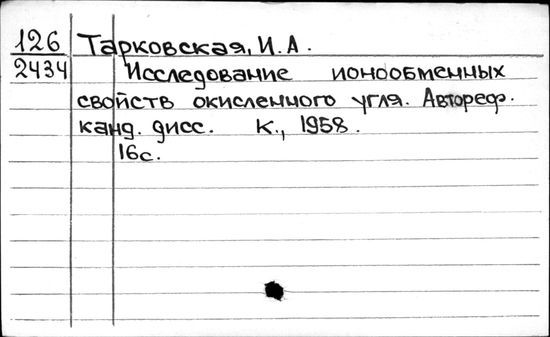 126 Тарковская, И. А.
2434 Исследование ионообменных
свойств окисленного угля. Автореф.
канд. дисс. К., 1958.
16 с.